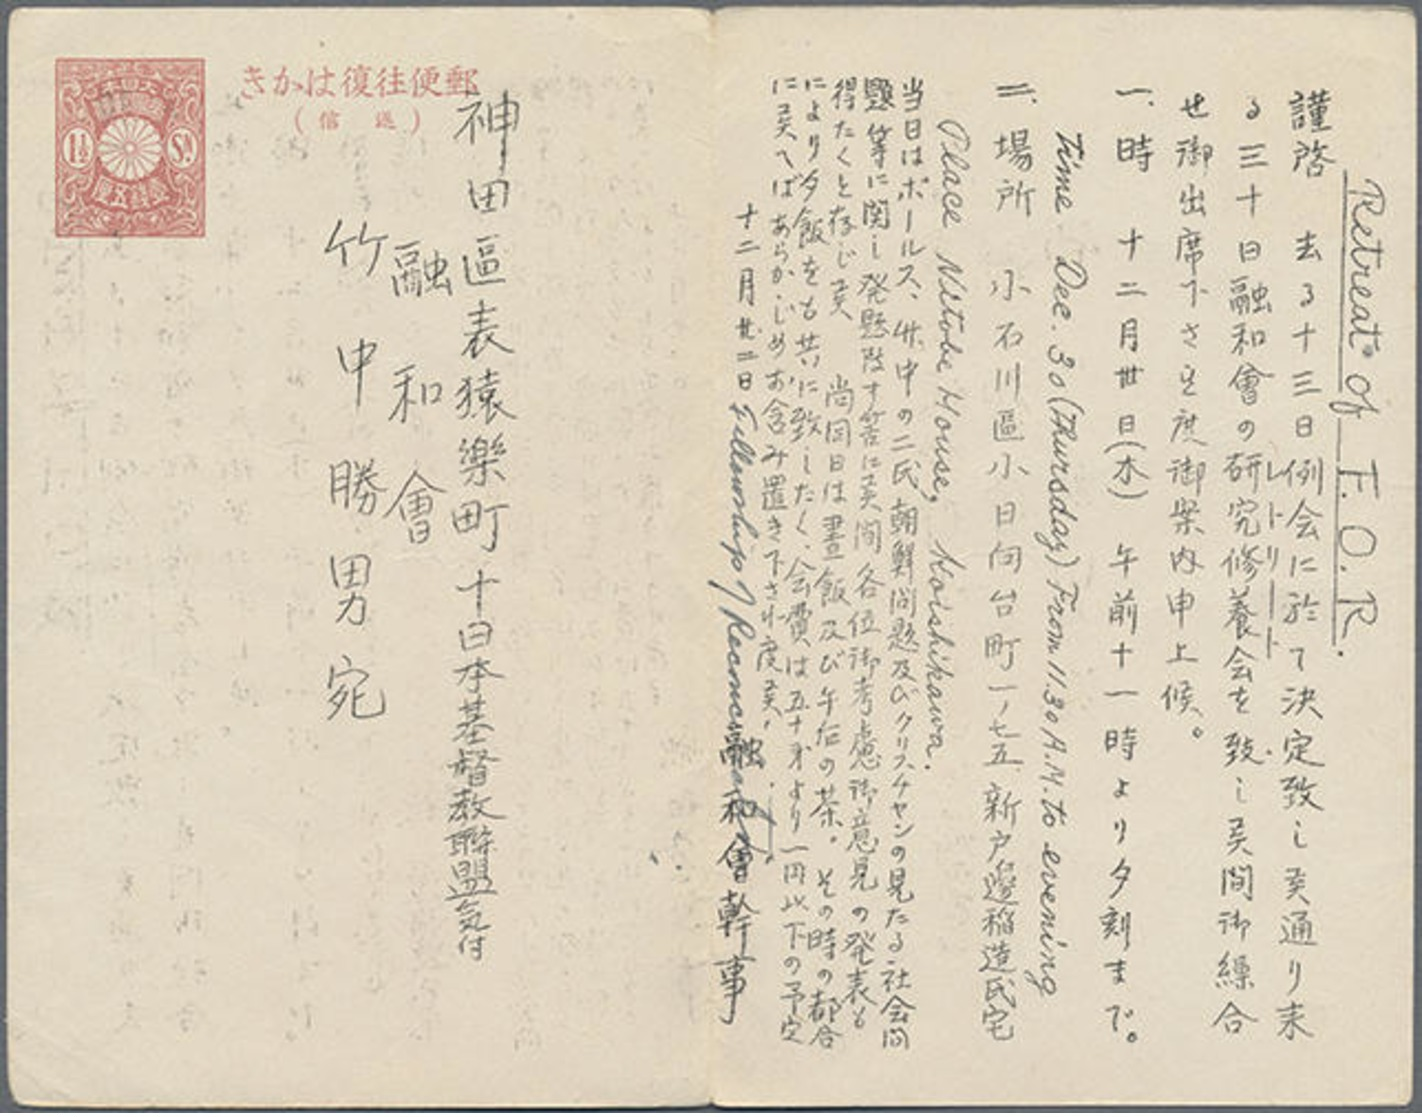 Retreat of F.O.R.
謹啓 去る十三日例会に於て決定致し候通り来
る三十日融和會の研究修養会を致し候間御繰合
レトリート
せ御出席下され度御案内申上候。
一、時 十二月卅日(木) 午前十一時より夕刻まで。
Time Dec. 30 (Thursday) From 11.30 A.M. to evening
二、場所 小石川區小日向台町一ノ七五 新戸邊稲造氏宅
Place Nitobe House, Koishikawa.
当日はボールス、竹中の二氏朝鮮問題及びクリスチャンの見たる社会問
題等に関し発題致す筈に候間各位御考慮御意見の発表も
得たくと存じ候 尚同日は晝飯及び午后の茶。その時の都合
により夕飯をも共に致したく、会費は五十銭より一円以下の予定
に候へばあらかじめお含み置き下され度候、
十二月廿二日 Fellowship of Reconciliation
融和會幹事
郵便往復はかき
(送信)
1½ Sn.
神田區表猿樂町十日本基督教聯盟気付
融和會
竹中勝男宛